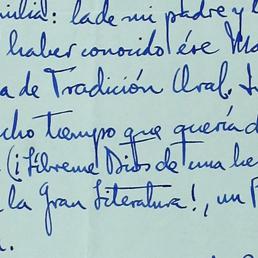 milia: la de mi padre y l
haber conocido ése Ma
a de Tradición Oral.
cho tiempo que quería d
(¡líbreme Dios de una he
la Gran Literatura!, un